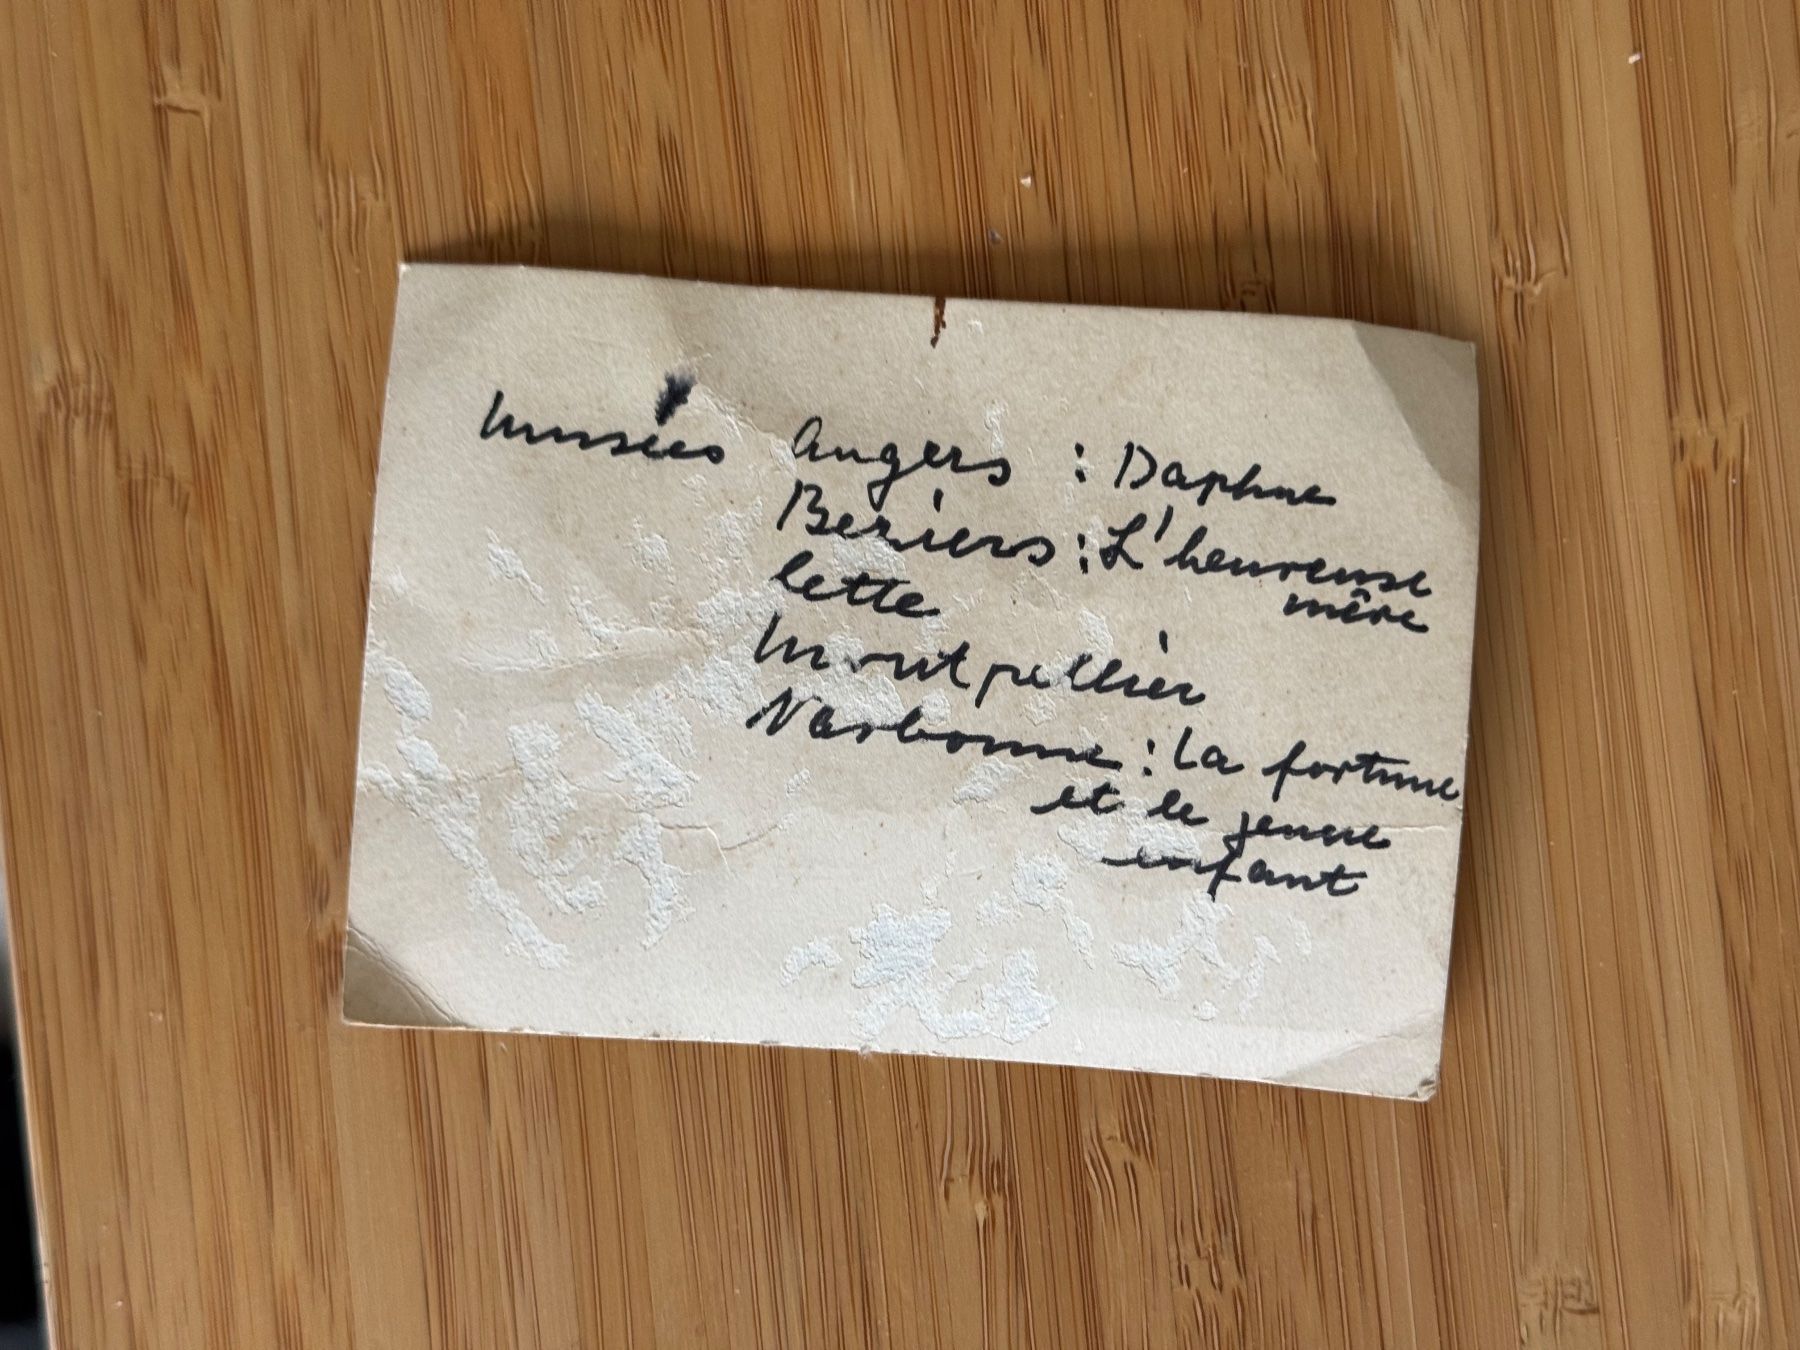 Musées Angers : Daphne
Beziers : L'heureuse
mère
Cette
Montpellier
Narbonne : La fortune
et le jeune
enfant